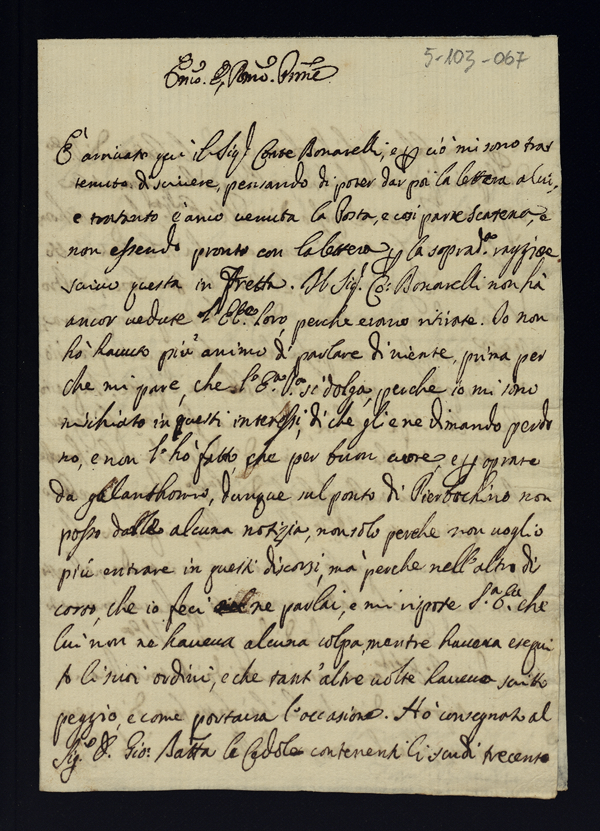 5-103-067
Em.o e R.mo Prn̄e
È arrivato qui il Sig.r Conte Bonarelli, e p ciò mi sono trat
tenuto di scrivere, pensando di poter dar poi la lettera a lui,
e trattanto è anco venuta la Posta, e così parte Scatena, e
non essendo pronto con la lettera p la soprad.a raggione
scrivo questa in fretta. Il Sig.r Co: Bonarelli non hà
ancor vedute l'Ecc.ze loro, perche erano ritirate. Io non
hò havuto più animo di parlare di niente, prima per
che mi pare, che l'E.za V.ra si dolga, perche io mi sono
mischiato in questi interessi, di che gli ene dimando perdo
no, e non l'hò fatto, che per buon cuore, e p oprare
da galanthomo, dunque sul ponto di Pierbochino non
posso dalle alcuna notizia, non solo perche non voglio
più entrare in questi discorsi, mà perche nell'altro di
corso, che io feci ne parlai, e mi rispose S.a Ecc. che
lui non ne haveva alcuna colpa, mentre haveva esegui
to li suoi ordini, e che tant'altre volte haveva scritto
peggio, e come portava l'occasione. Hò consegnato al
Sig.r D. Gio: Batta le Cedole contenenti li scudi trecento